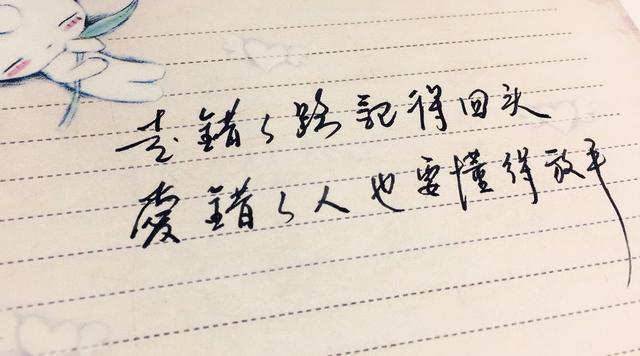 走錯了路記得回头
愛錯了人也要懂得放手